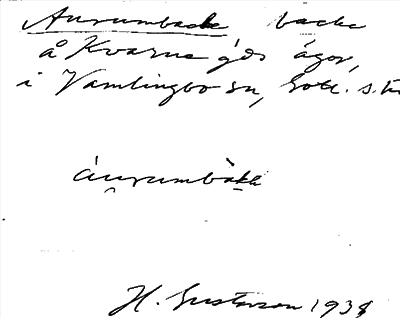 Aurumback backe
å Kvarne gds ägor,
i Vamlingbo sn, Gotl. s.
áurumbàkk
H. Gustavson 1938